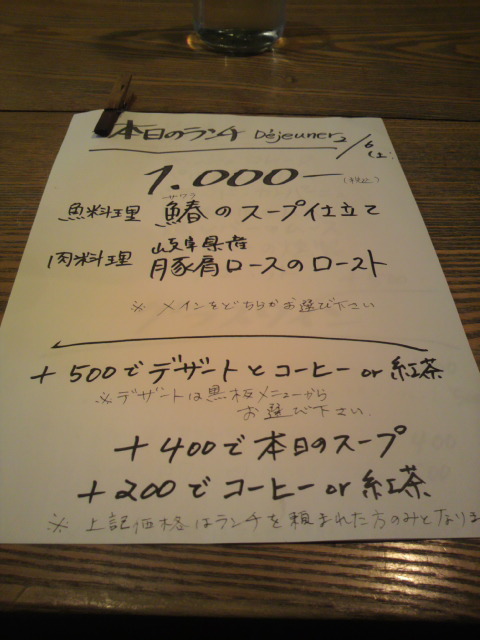 本日のランチ Déjeuner 2/6(土)
1.000ー(税込)
サワラ
魚料理 鰆のスープ仕立て
岐阜県産
肉料理 豚肩ロースのロースト
※ メインをどちらかお選び下さい
+500でデザートとコーヒー or 紅茶
※デザートは黒板メニューから
お選び下さい.
+400で本日のスープ
+200でコーヒー or 紅茶
※ 上記価格はランチを頼まれた方のみとなりま